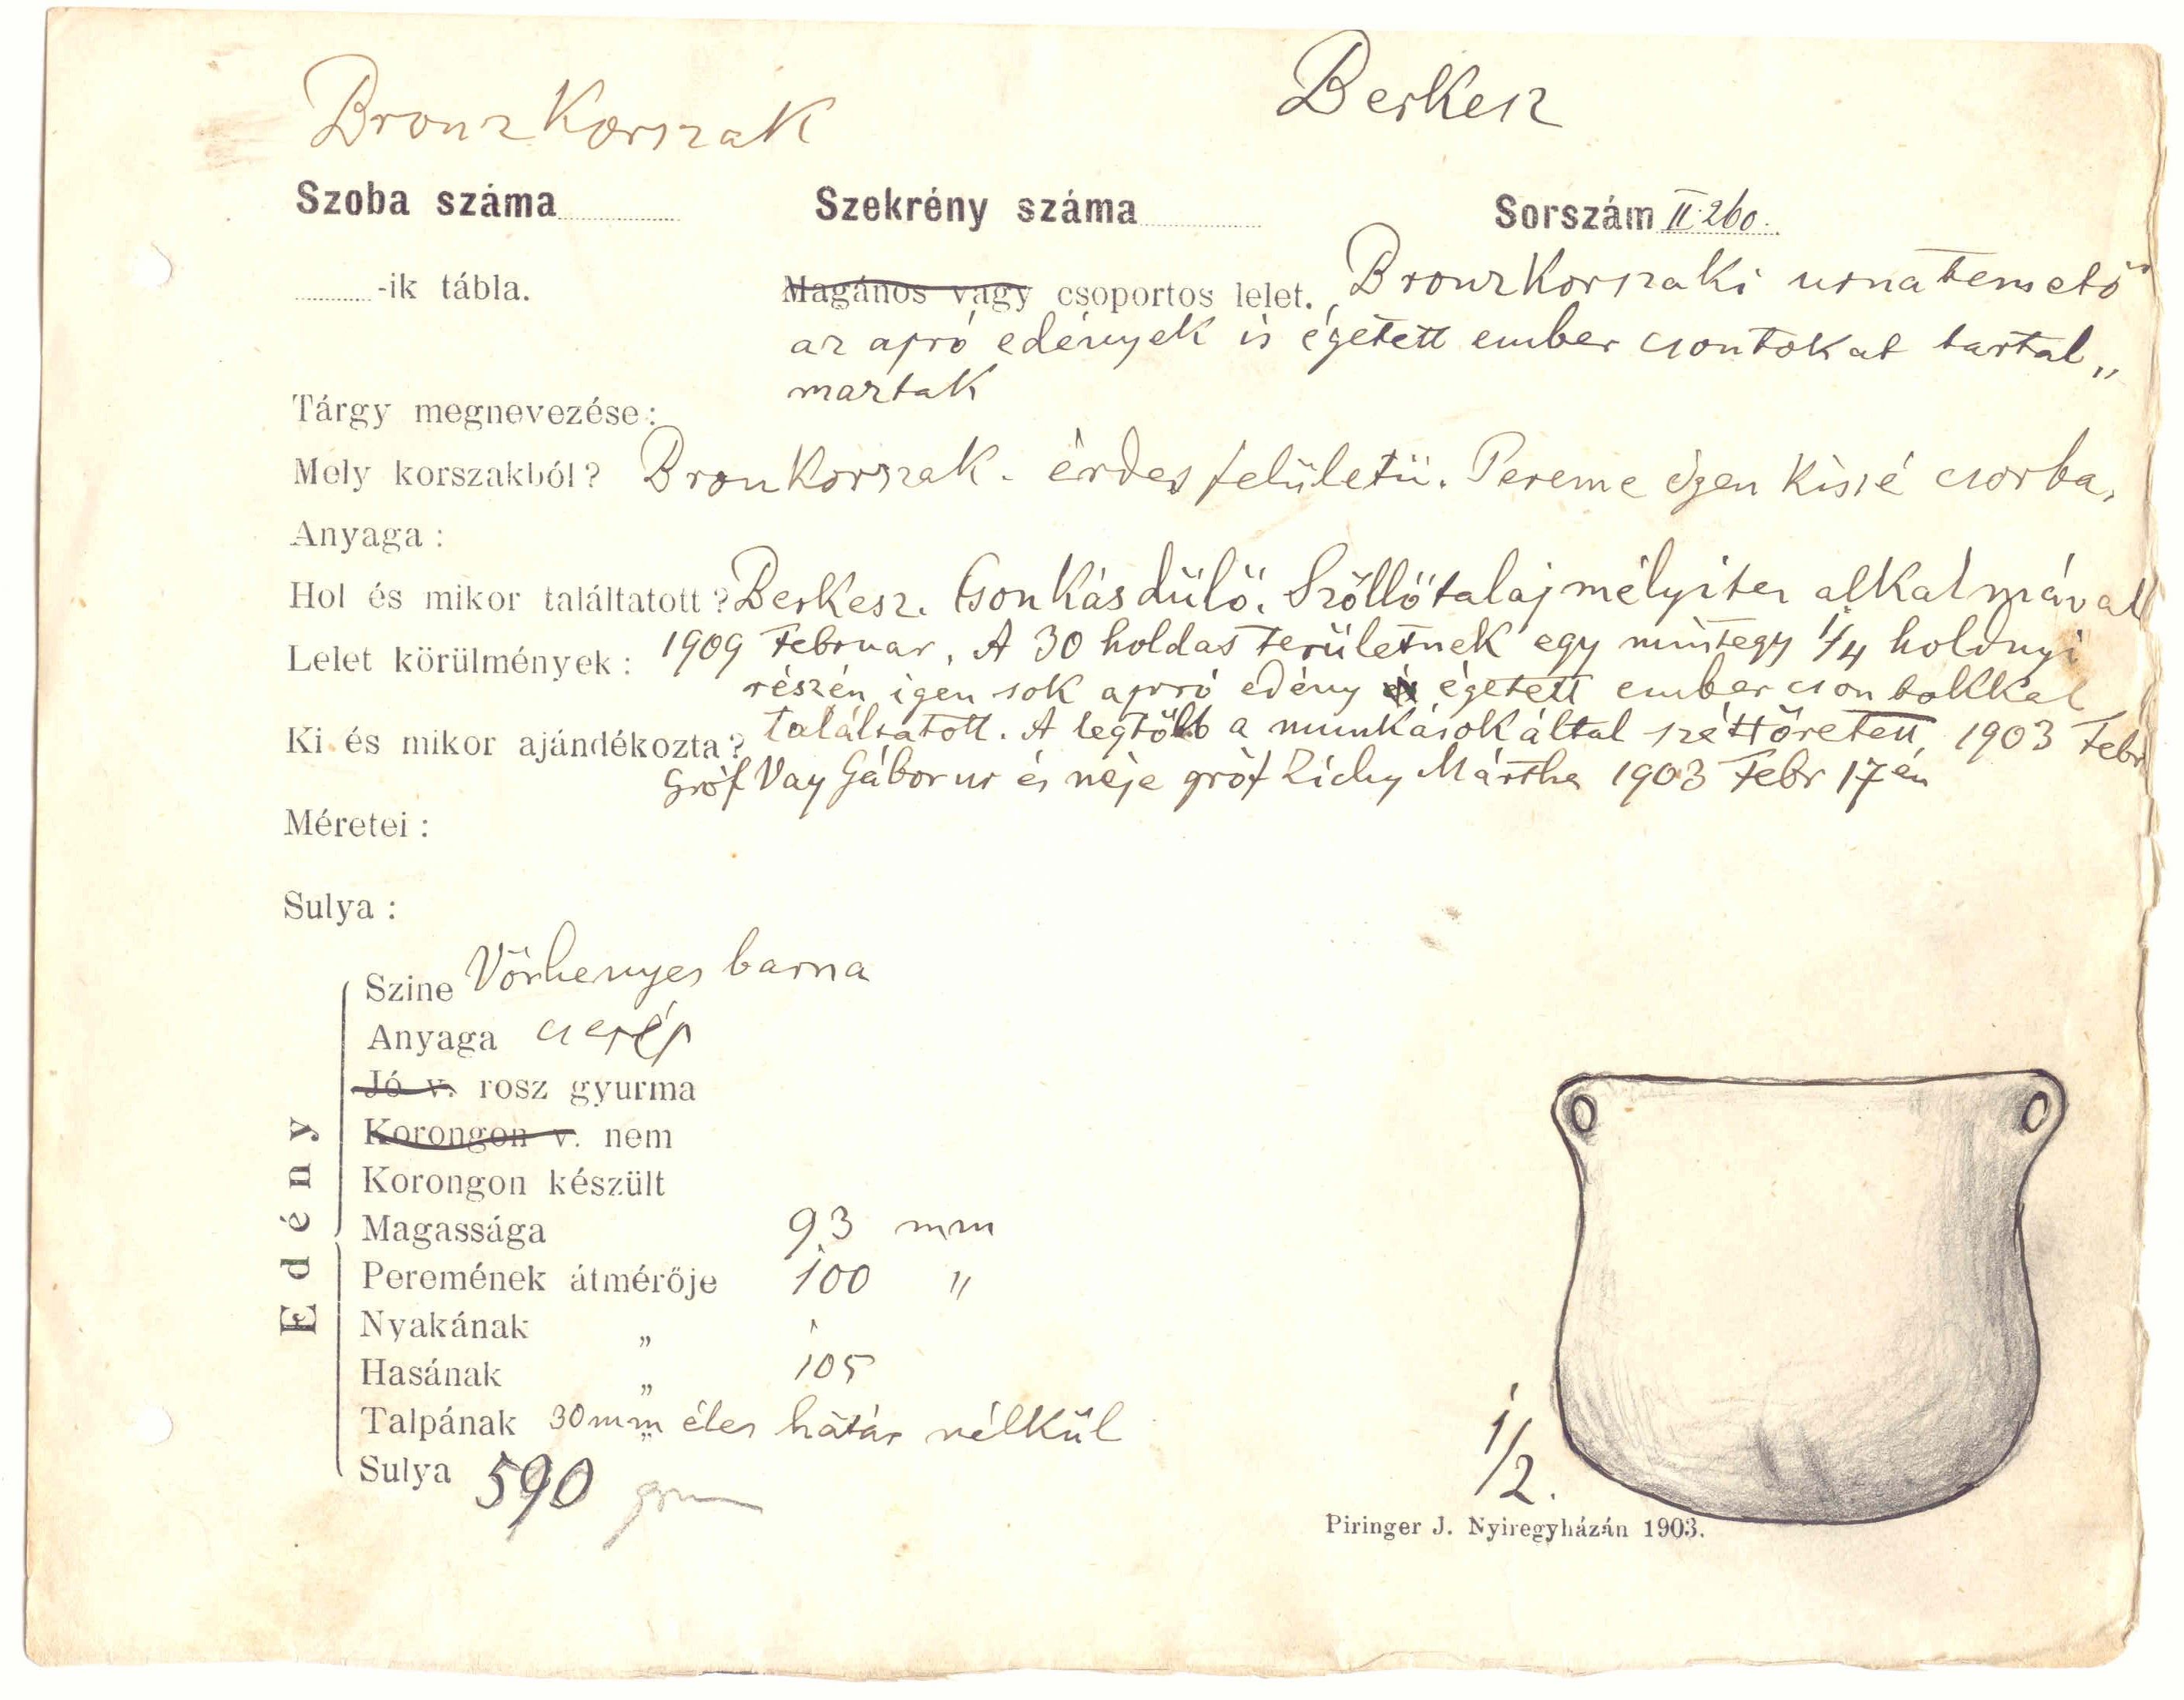 Bronz Korszak
Berkesz
Szoba száma
Szekrény száma
Sorszám II.260.
-ik tábla.
Magános vagy csoportos lelet. Bronzkorszaki urnatemető
az apró edények is égetett ember csontokat tartal„
maztak
Tárgy megnevezése:
Mely korszakból? Bronkorszak. érdes felületü. Pereme igen kissé csorba.
Anyaga:
Hol és mikor találtatott? Berkesz. Csonkás dülő. Szőllőtalaj mélyites alkalmával
Lelet körülmények: 1909 Februar. A 30 holdas területnek egy mintegy 1/4 holdnyi
részén igen sok apró edény égetett ember csontokkal
Ki és mikor ajándékozta? találtatott. A legtöbb a munkások által széttöretett, 1903 Febr
Gróf Vay Gábor ur és neje gróf Zichy Mártha 1903 Febr 17én
Méretei:
Sulya:
Edény
Szine Vörhenyes barna
Anyaga cserép
Jó v. rosz gyurma
Korongon v. nem
Korongon készült
Magassága 93 mm
Peremének átmérője 100 "
Nyakának „
Hasának „ 105
Talpának „ 30mm éles határ nélkül
Sulya 590 grm
1/2.
Piringer J. Nyiregyházán 1903.